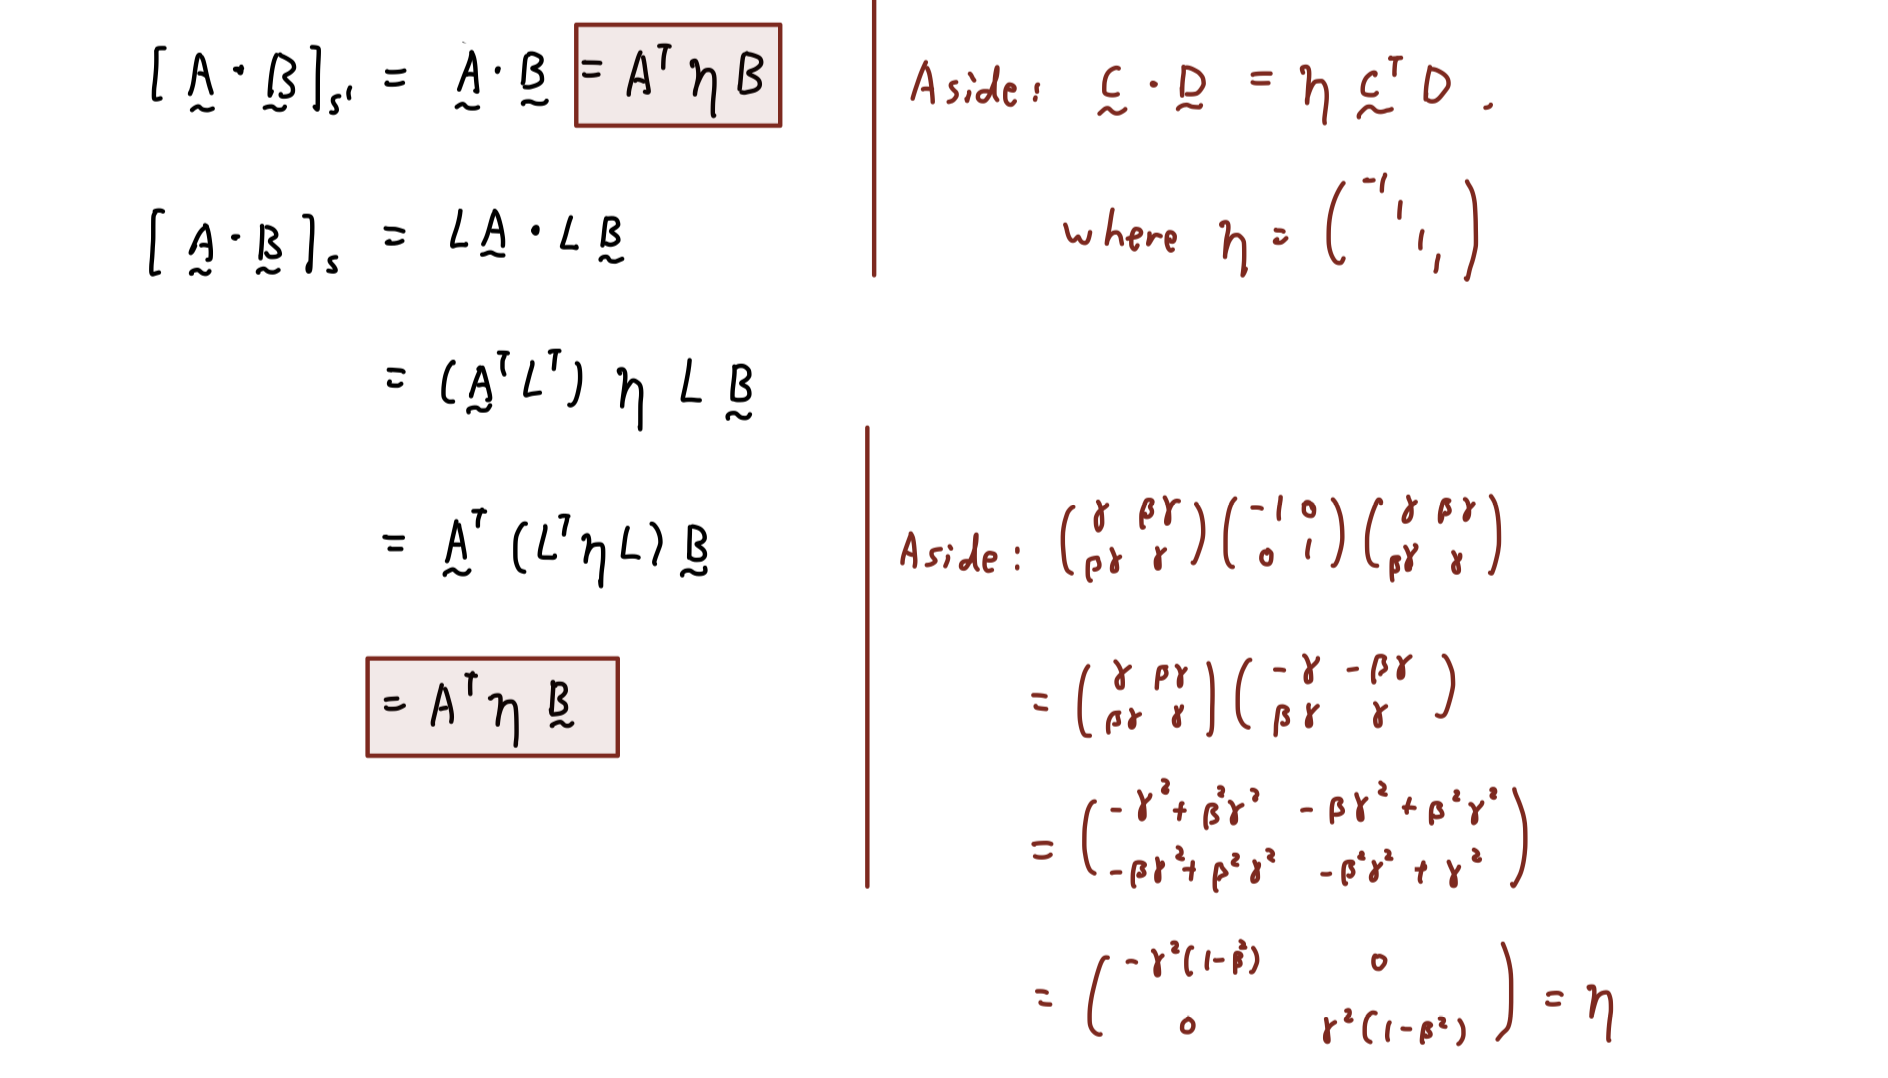 [ A̰ · B̰ ]ₛ' = A̰ · B̰ = Aᵀ η B
[ A̰ · B̰ ]ₛ = L A̰ · L B̰
= (A̰ᵀ Lᵀ) η L B̰
= A̰ᵀ (Lᵀ η L) B̰
= Aᵀ η B̰
Aside: C̰ · D̰ = η C̰ᵀ D .
where η = ( -1 1 1 1 )
Aside: ( γ βγ ; βγ γ ) ( -1 0 ; 0 1 ) ( γ βγ ; βγ γ )
= ( γ βγ ; βγ γ ) ( -γ -βγ ; βγ γ )
= ( -γ² + β²γ² -βγ² + β²γ² ; -βγ² + β²γ² -β²γ² + γ² )
= ( -γ²(1-β²) 0 ; 0 γ²(1-β²) ) = η